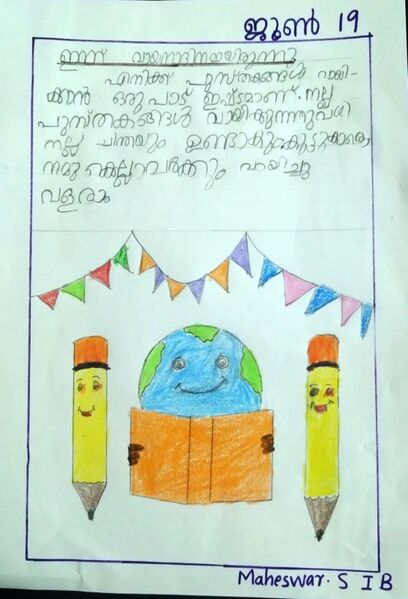 ജൂൺ 19
ഇന്ന് വായനാദിനമായിരുന്നു
എനിക്ക് പുസ്തകങ്ങൾ വായി-
ക്കാൻ ഒരുപാട് ഇഷ്ടമാണ്. നല്ല
പുസ്തകങ്ങൾ വായിക്കുന്നതുവഴി
നല്ല ചിന്തയും ഉണ്ടാകും കൂട്ടുകാരെ,
നമുക്കെല്ലാവർക്കും വായിച്ചു
വളരാം
Maheswar. S I B